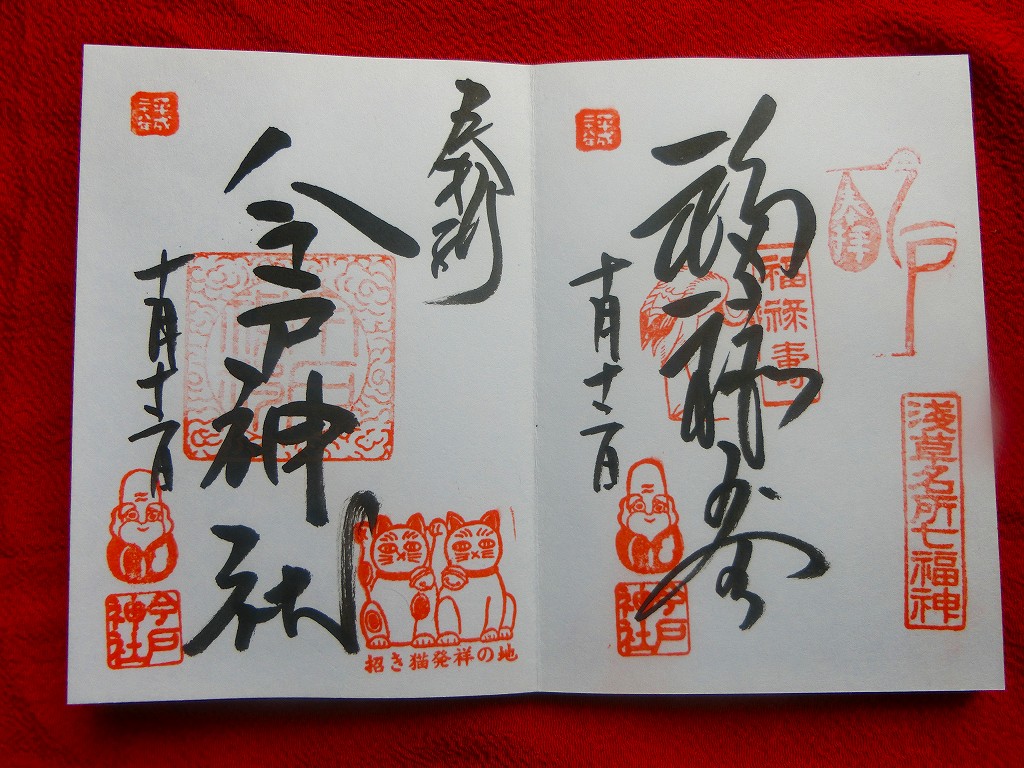 奉拝
淺草名所七福神
福禄寿
福禄壽
平成二十八年
十月十二日
今戸神社
奉拝
今戸神社
平成二十八年
十月十二日
今戸神社
招き猫発祥の地